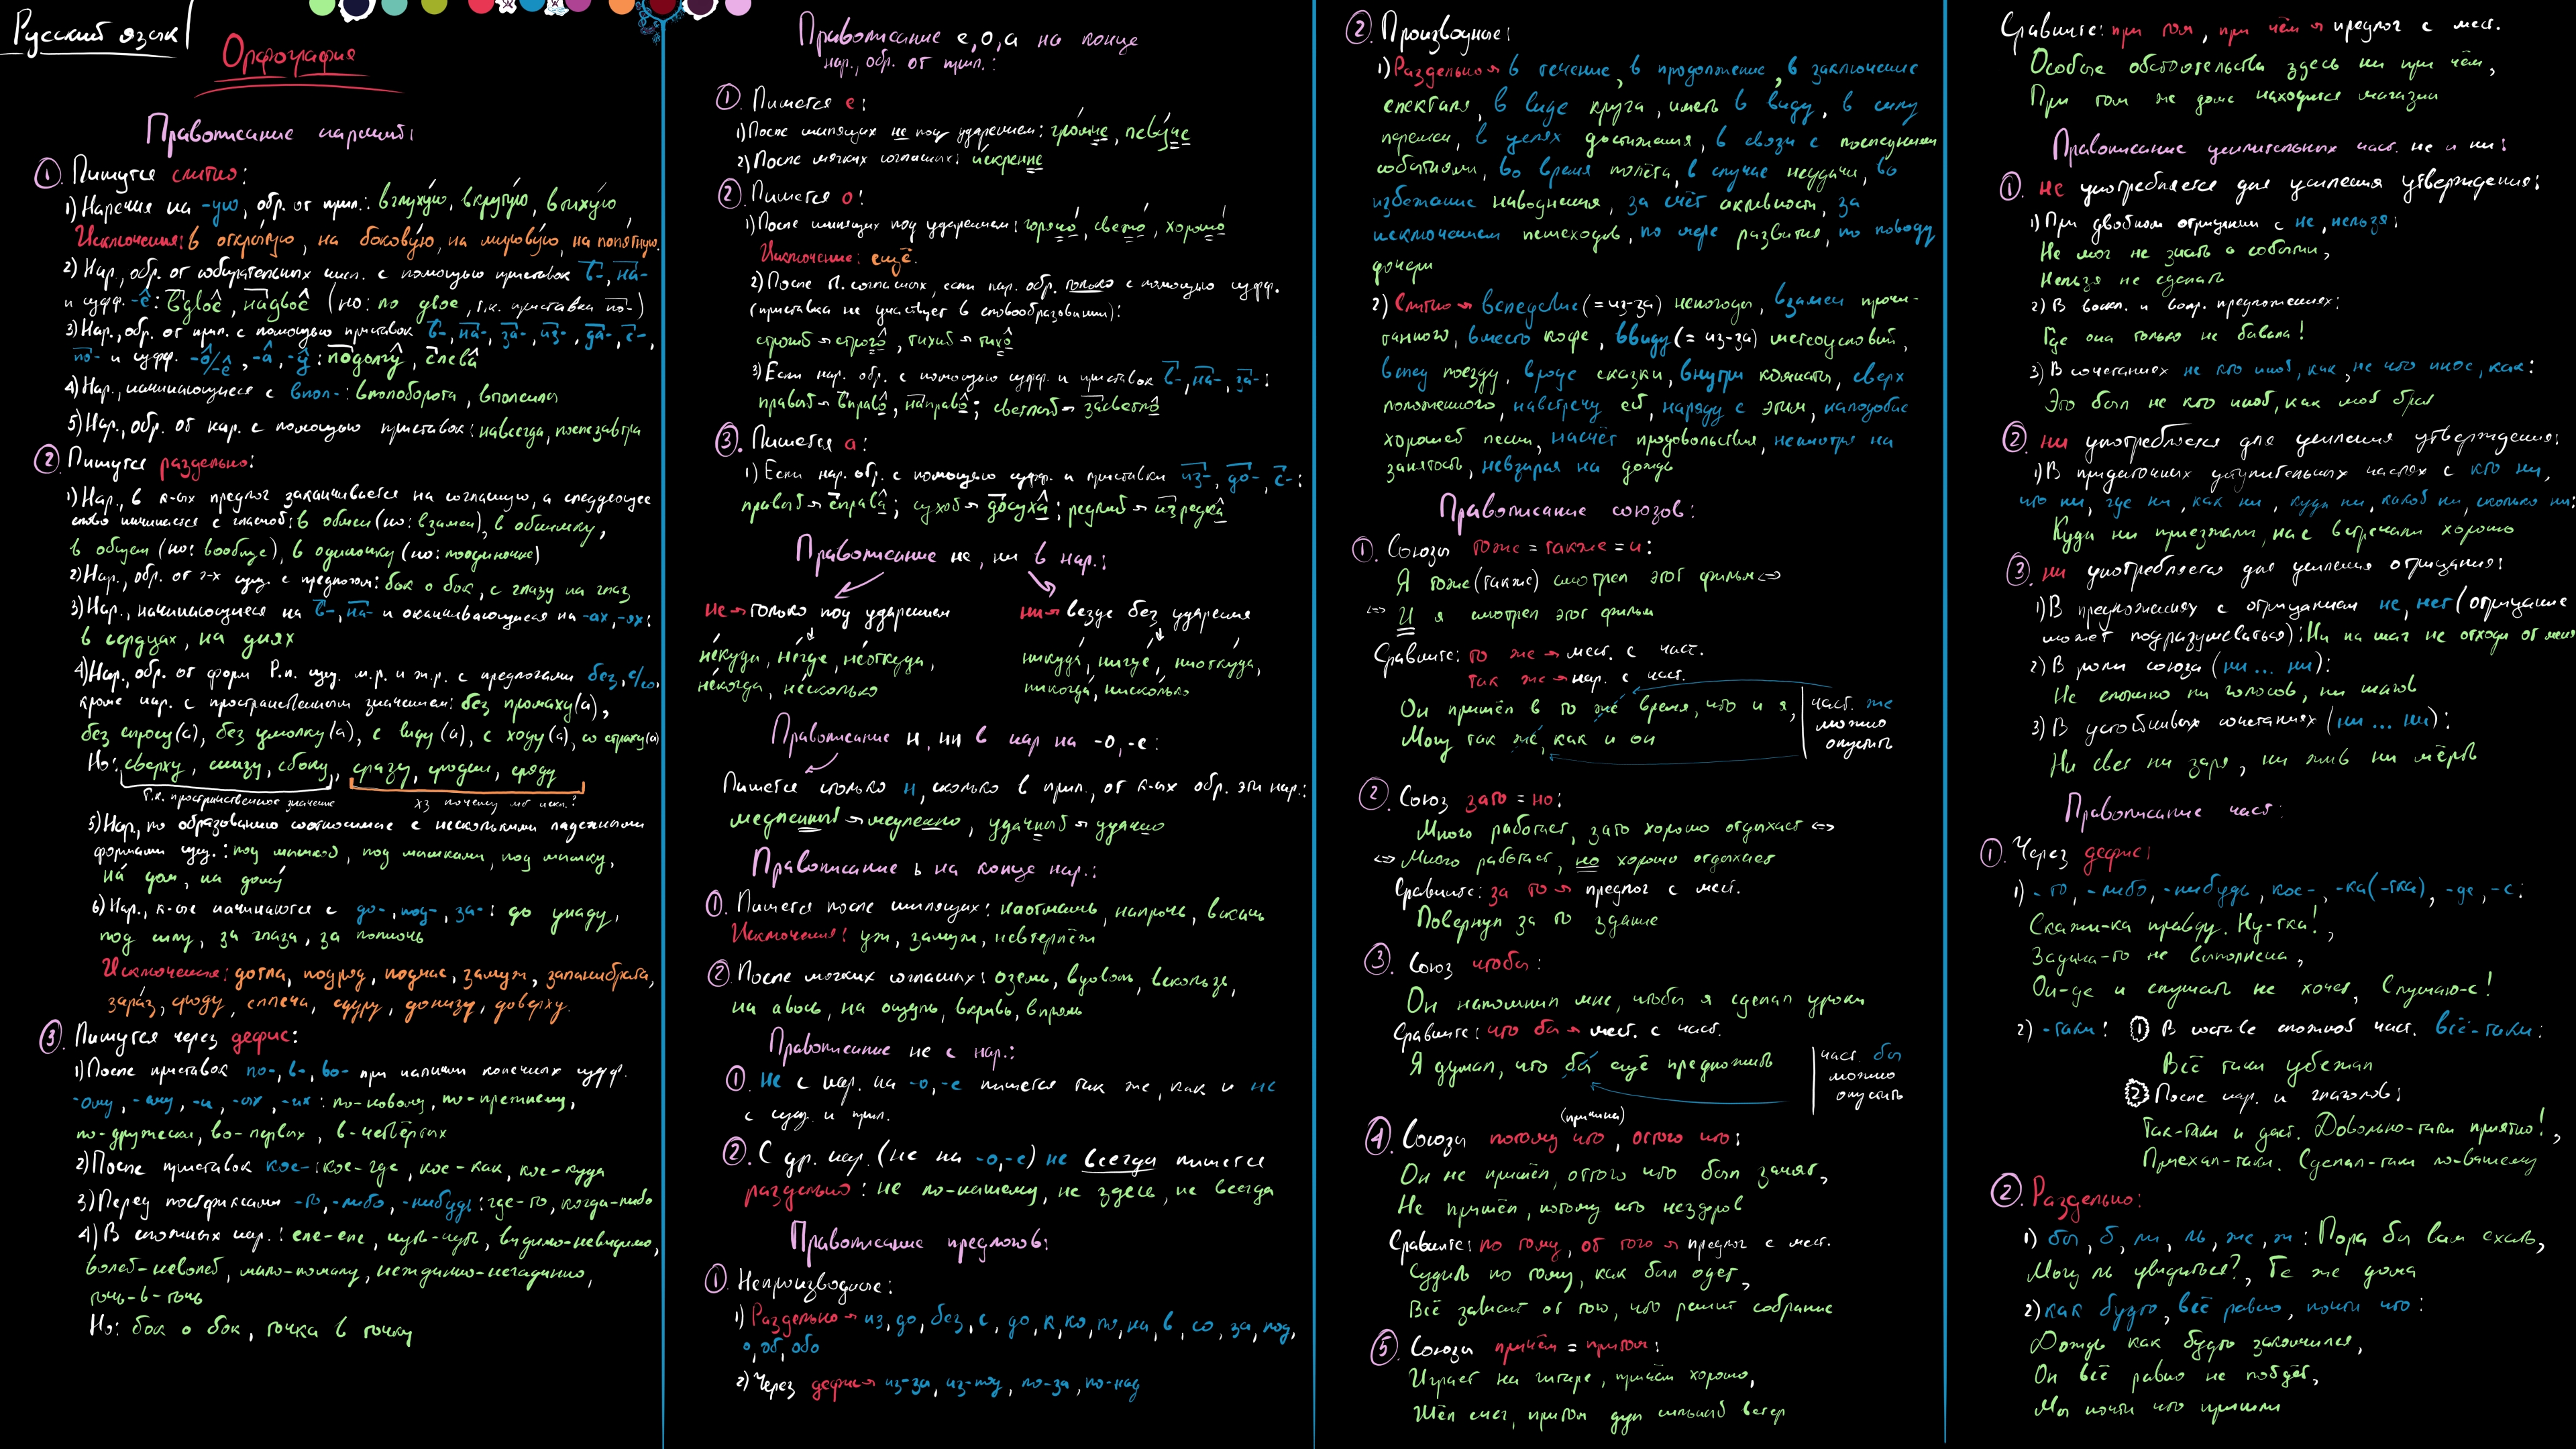 Русский язык
Орфография
Правописание наречий:
1. Пишутся слитно:
1) Наречия на -ую, обр. от прил.: вглухую, вкрутую, втихую,
Исключения: в открытую, на боковую, на мировую, на попятную.
2) Нар., обр. от собирательных числ. с помощью приставок в-, на-
и суфф. -е: вдвое, надвое (но: по двое, т.к. приставка по-)
3) Нар., обр. от прил. с помощью приставок в-, на-, за-, из-, до-, с-,
по- и суфф. -о/-е, -а, -у: подолгу, слева
4) Нар., начинающиеся с впол-: вполоборота, вполсилы
5) Нар., обр. от нар. с помощью приставок: навсегда, послезавтра
2. Пишутся раздельно:
1) Нар., в к-ых предлог заканчивается на согласную, а следующее
слово начинается с гласной: в обмен (но: взамен), в обнимку,
в общем (но: вообще), в одиночку (но: поодиночке)
2) Нар., обр. от 2-х сущ. с предлогом: бок о бок, с глазу на глаз
3) Нар., начинающиеся на в-, на- и оканчивающиеся на -ах, -ях:
в сердцах, на днях
4) Нар., обр. от форм Р.п. сущ. м.р. и ж.р. с предлогами без, с/со,
кроме нар. с пространственным значением: без промаху(а),
без спросу(а), без умолку(а), с виду(а), с ходу(а), со страху(а)
Но: сверху, снизу, сбоку, сразу, сродни, сряду
т.к. пространственное значение
хз почему мб искл.?
5) Нар., по образованию соотносимые с несколькими падежными
формами сущ.: под мышкой, под мышками, под мышку,
на дом, на дому
6) Нар., к-ые начинаются с до-, под-, за-: до упаду,
под силу, за глаза, за полночь
Исключения: дотла, подряд, подчас, замуж, запанибрата,
зараз, сряду, сплеча, сдуру, донизу, доверху.
3. Пишутся через дефис:
1) После приставок по-, в-, во- при наличии конечных суфф.
-ому, -ему, -и, -ых, -их: по-новому, по-прежнему,
по-дружески, во-первых, в-четвёртых
2) После приставок кое-: кое-где, кое-как, кое-куда
3) Перед постфиксами -то, -либо, -нибудь: где-то, когда-либо
4) В сложных нар.: еле-еле, чуть-чуть, видимо-невидимо,
волей-неволей, мало-помалу, нежданно-негаданно,
точь-в-точь
Но: бок о бок, точка в точку
Правописание е, о, а на конце
нар., обр. от прил.:
1. Пишется е:
1) После шипящих не под ударением: громче, певуче
2) После мягких согласных: искренне
2. Пишется о:
1) После шипящих под ударением: горячо, свежо, хорошо
Исключение: ещё.
2) После т. согласных, если нар. обр. только с помощью суфф.
(приставка не участвует в словообразовании):
строгий → строго, тихий → тихо
3) Если нар. обр. с помощью суфф. и приставок в-, на-, за-:
правый → вправо, направо; светлый → засветло
3. Пишется а:
1) Если нар. обр. с помощью суфф. и приставки из-, до-, с-:
правый → справа; сухой → досуха; редкий → изредка
Правописание не, ни в нар.:
не → только под ударением
ни → везде без ударения
некуда, негде, неоткуда,
некогда, несколько
никуда, нигде, ниоткуда,
никогда, нисколько
Правописание н, нн в нар на -о, -е:
Пишется столько н, сколько в прил., от к-ых обр. эти нар.:
медленный → медленно, удачный → удачно
Правописание ь на конце нар.:
1. Пишется после шипящих: наотмашь, напрочь, вскачь
Исключения: уж, замуж, невтерпёж
2. После мягких согласных: оземь, вдоволь, вскользь,
на авось, на ощупь, вкривь, впрямь
Правописание не с нар.:
1. Не с нар. на -о, -е пишется так же, как и не
с сущ. и прил.
2. С др. нар. (не на -о, -е) не всегда пишется
раздельно: не по-нашему, не здесь, не всегда
Правописание предлогов:
1. Непроизводные:
1) Раздельно → из, до, без, с, до, к, ко, по, на, в, со, за, под,
о, об, обо
2) Через дефис → из-за, из-под, по-за, по-над
2. Производные:
1) Раздельно → в течение, в продолжение, в заключение
спектакля, в виде круга, иметь в виду, в силу
перемен, в целях достижения, в связи с последними
событиями, во время полёта, в случае неудачи, во
избежание наводнения, за счёт активности, за
исключением пешеходов, по мере развития, по поводу
дочери
2) Слитно → вследствие (= из-за) непогоды, взамен прочи-
танного, вместо кофе, ввиду (= из-за) метеоусловий,
вслед поезду, вроде сказки, внутри комнаты, сверх
положенного, навстречу ей, наряду с этим, наподобие
хорошей песни, насчёт продовольствия, несмотря на
занятость, невзирая на дождь
Правописание союзов:
1. Союзы тоже = также = и:
Я тоже (также) смотрел этот фильм ⇔
⇔ И я смотрел этот фильм
Сравните: то же → мест. с част.
так же → нар. с част.
Он пришёл в то же время, что и я,
Могу так же, как и он
част. же
можно
опустить
2. Союз зато = но:
Много работает, зато хорошо отдыхает ⇔
⇔ Много работает, но хорошо отдыхает
Сравните: за то → предлог с мест.
Повернул за то здание
3. Союз чтобы:
Он напомнил мне, чтобы я сделал уроки
Сравните: что бы → мест. с част.
Я думал, что бы ещё предложить
част. бы
можно
опустить
(причина)
4. Союзы потому что, оттого что:
Он не пришёл, оттого что был занят,
Не пришёл, потому что нездоров
Сравните: по тому, от того → предлог с мест.
Судить по тому, как был одет,
Всё зависит от того, что решит собрание
5. Союзы причём = притом:
Играет на гитаре, причём хорошо,
Шёл снег, притом дул сильный ветер
Сравните: при том, при чём → предлог с мест.
Особые обстоятельства здесь ни при чём,
При том же доме находился магазин
Правописание усилительных част. не и ни:
1. Не употребляется для усиления утверждения:
1) При двойном отрицании с не, нельзя:
Не мог не знать о событии,
Нельзя не сделать
2) В воскл. и вопр. предложениях:
Где она только не бывала!
3) В сочетаниях не кто иной, как, не что иное, как:
Это был не кто иной, как мой брат
2. ни употребляется для усиления утверждения:
1) В придаточных уступительных частях с кто ни,
что ни, где ни, как ни, куда ни, какой ни, сколько ни:
Куда ни приезжали, нас встречали хорошо
3. ни употребляется для усиления отрицания:
1) В предложениях с отрицанием не, нет (отрицание
может подразумеваться): Ни на шаг не отходи от меня
2) В роли союза (ни... ни):
Не слышно ни голосов, ни шагов
3) В устойчивых сочетаниях (ни... ни):
Ни свет ни заря, ни жив ни мёртв
Правописание част.:
1. Через дефис:
1) -то, -либо, -нибудь, кое-, -ка(-тка), -де, -с:
Скажи-ка правду. Ну-тка!,
Задача-то не выполнена,
Он-де и слушать не хочет, Слушаю-с!
2) -таки: 1 В составе сложной част. всё-таки:
Всё таки убежал
2 После нар. и глаголов:
Так-таки и даст. Довольно-таки приятно!,
Приехал-таки. Сделал-таки по-вашему
2. Раздельно:
1) бы, б, ли, ль, же, ж: Пора бы вам ехать,
Могу ль увидиться?, Те же дома
2) как будто, всё равно, почти что:
Дождь как будто закончился,
Он всё равно не пойдёт,
Мы почти что пришли